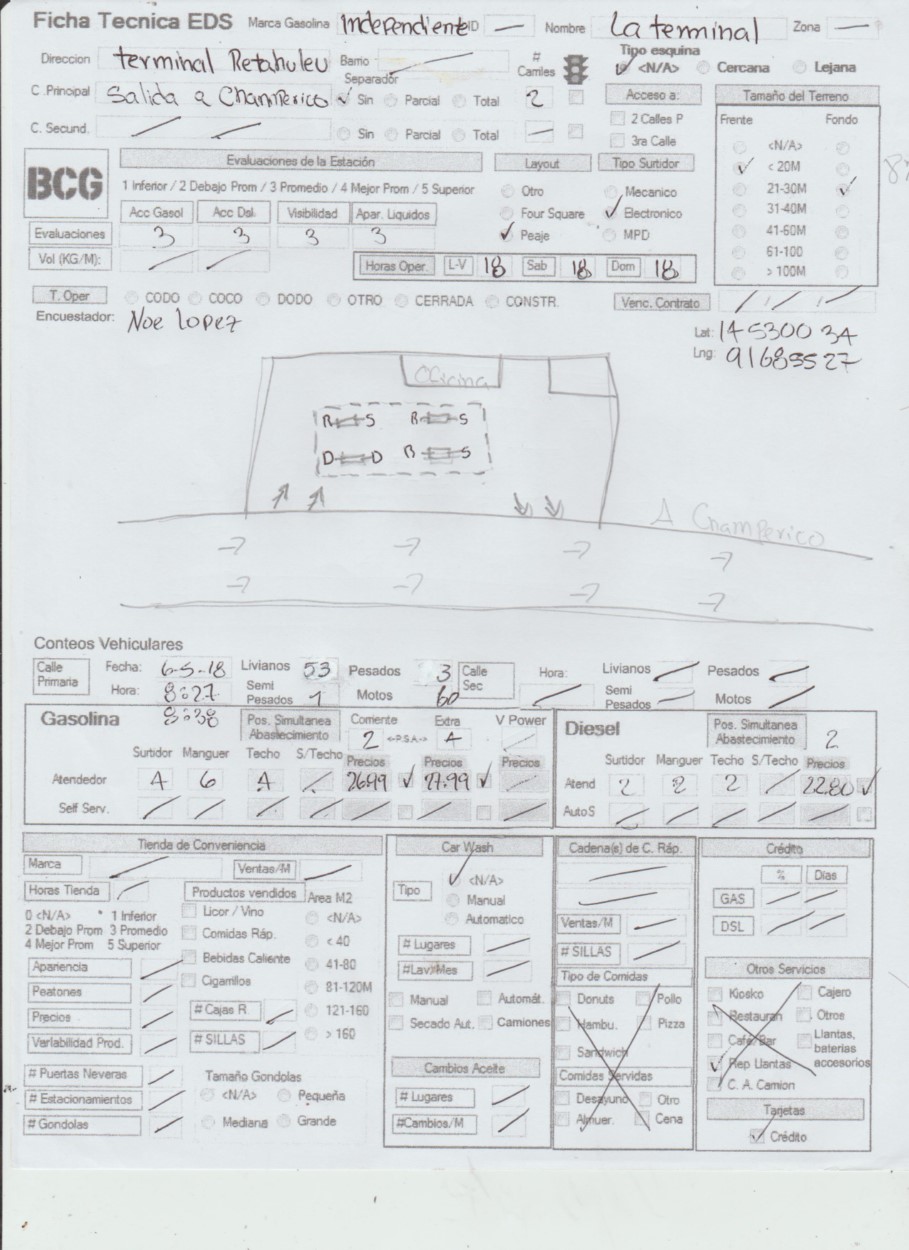 Ficha Tecnica EDS Marca Gasolina Independiente ID — Nombre La terminal Zona —
Direccion terminal Retahuleu Barrio — # Carriles Tipo esquina
Separador <N/A> Cercana Lejana
C .Principal Salida a Champerico Sin Parcial Total 2 Acceso a: Tamaño del Terreno
C. Secund. Sin Parcial Total — 2 Calles P Frente Fondo
3ra Calle <N/A>
BCG Evaluaciones de la Estación Layout Tipo Surtidor < 20M
1 Inferior / 2 Debajo Prom / 3 Promedio / 4 Mejor Prom / 5 Superior Otro Mecanico 21-30M
Acc Gasol Acc Dsl. Visibilidad Apar. Liquidos Four Square Electronico 31-40M
Evaluaciones 3 3 3 3 Peaje MPD 41-60M
Vol (KG/M): Horas Oper. L-V 18 Sab 18 Dom 18 61-100
> 100M
T. Oper CODO COCO DODO OTRO CERRADA CONSTR. Venc. Contrato / /
Encuestador: Noe Lopez
Lat: 14 5300 34
Lng: 91685527
Oficina
R S R S
D D B S
A Champerico
Conteos Vehiculares
Calle Primaria Fecha: 6-5-18 Livianos 53 Pesados 3 Calle Sec Hora: Livianos Pesados
Hora: 8:27 Semi Pesados 1 Motos 60 Semi Pesados Motos
8:38
Gasolina Pos. Simultanea Abastecimiento Corriente Extra V Power Diesel Pos. Simultanea Abastecimiento 2
2 <-P.S.A-> 4
Surtidor Manguer Techo S/Techo Precios Precios Precios Surtidor Manguer Techo S/Techo Precios
Atendedor 4 6 4 26.99 27.99 Atend 2 2 2 22.80
Self Serv. Auto S
Tienda de Conveniencia Car Wash Cadena(s) de C. Ráp. Crédito
Marca Ventas/M <N/A> % Dias
Horas Tienda Productos vendidos Area M2 Tipo Manual GAS
0 <N/A> * 1 Inferior Licor / Vino <N/A> Automatico Ventas/M DSL
2 Debajo Prom 3 Promedio Comidas Ráp. < 40 # Lugares # SILLAS
4 Mejor Prom 5 Superior Bebidas Caliente 41-80 #Lav/Mes Tipo de Comidas Otros Servicios
Apariencia Cigarrillos 81-120M Manual Automát. Donuts Pollo Kiosko Cajero
Peatones # Cajas R. 121-160 Secado Aut. Camiones Hambu. Pizza Restauran Otros
Precios # SILLAS > 160 Sandwich Café/Bar Llantas, baterias accesorios
Variabilidad Prod. Cambios Aceite Comidas Servidas Rep Llantas
# Puertas Neveras Tamaño Gondolas # Lugares Desayuno Otro C. A. Camion
# Estacionamientos <N/A> Pequeña #Cambios/M Almuer. Cena Tarjetas
# Gondolas Mediana Grande Crédito